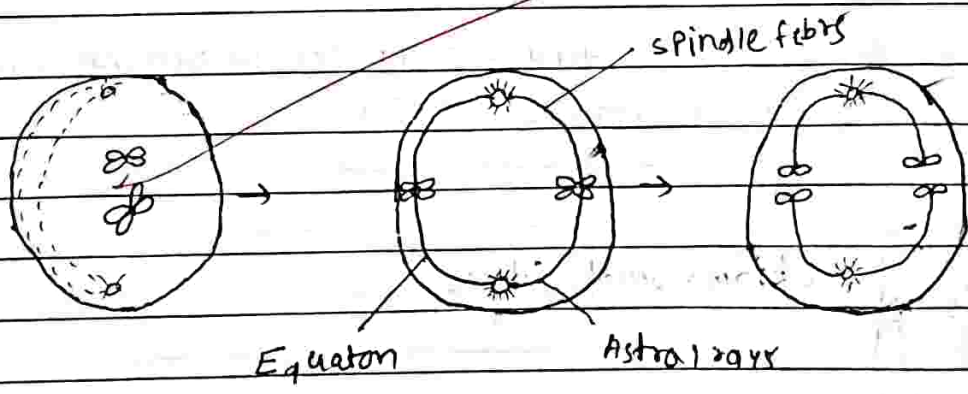 spindle febrs
Equaton
Astral rays